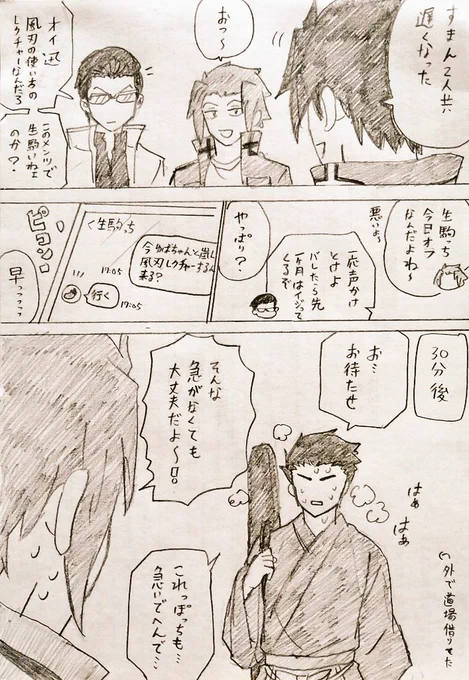 すまん2人共
遅くなった
おっ〜
オイ 迅
風刃の使い方の
レクチャーなんだろ
このメンツで
生駒いねェ
のか?
生駒っち
今日オフ
なんだよね〜
悪いよぉ
一応声かけ
とけよ
バレたら先
1ヶ月はイジって
くるぞ
やっぱり?
<生駒っち
今からちゃんと嵐し
風刃レクチャーするん
来る?
17:05
行く
17:05
ピコン
早っっっっ
30分後
お…
お待たせ
はぁ
はぁ
外で道場借りてた
そんな
急がなくても
大丈夫だよ〜!?
これっぽっちも…
急いでへんで…